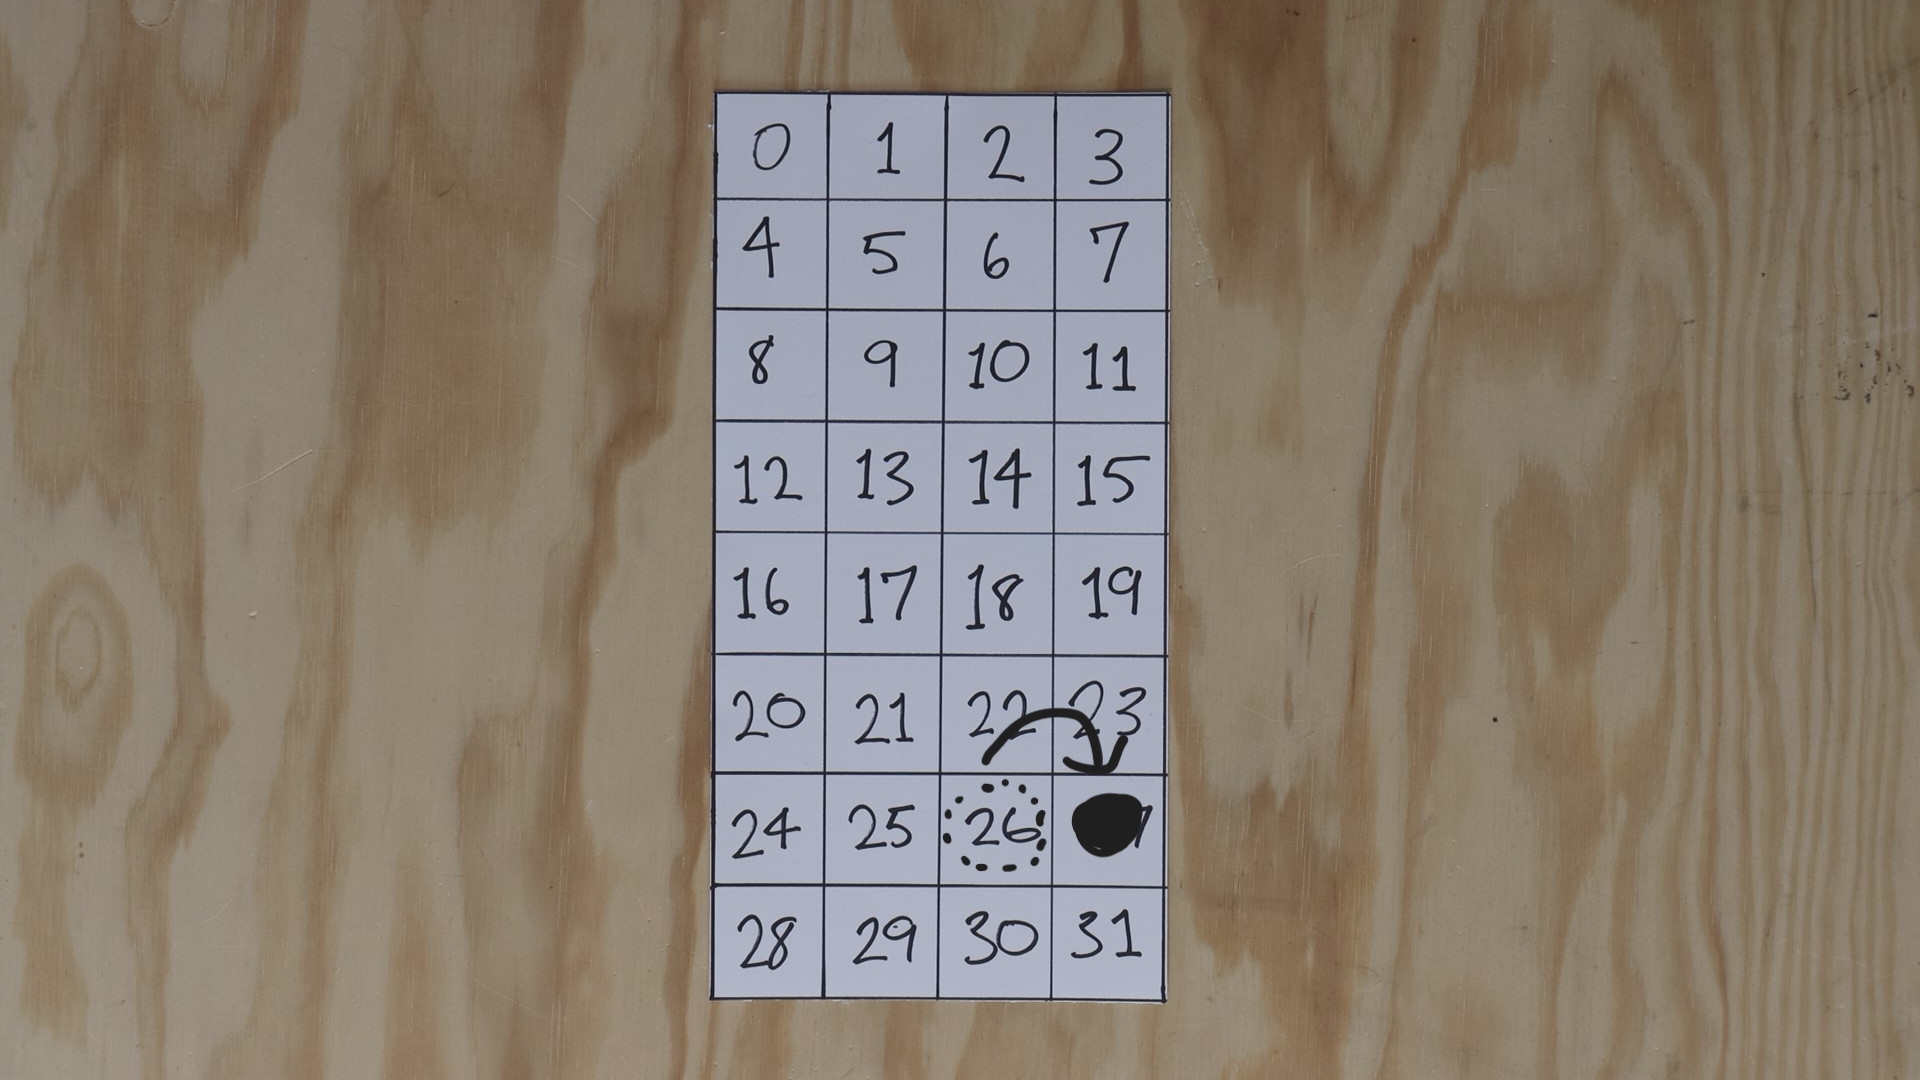 0 1 2 3
4 5 6 7
8 9 10 11
12 13 14 15
16 17 18 19
20 21 22 23
24 25 26
28 29 30 31